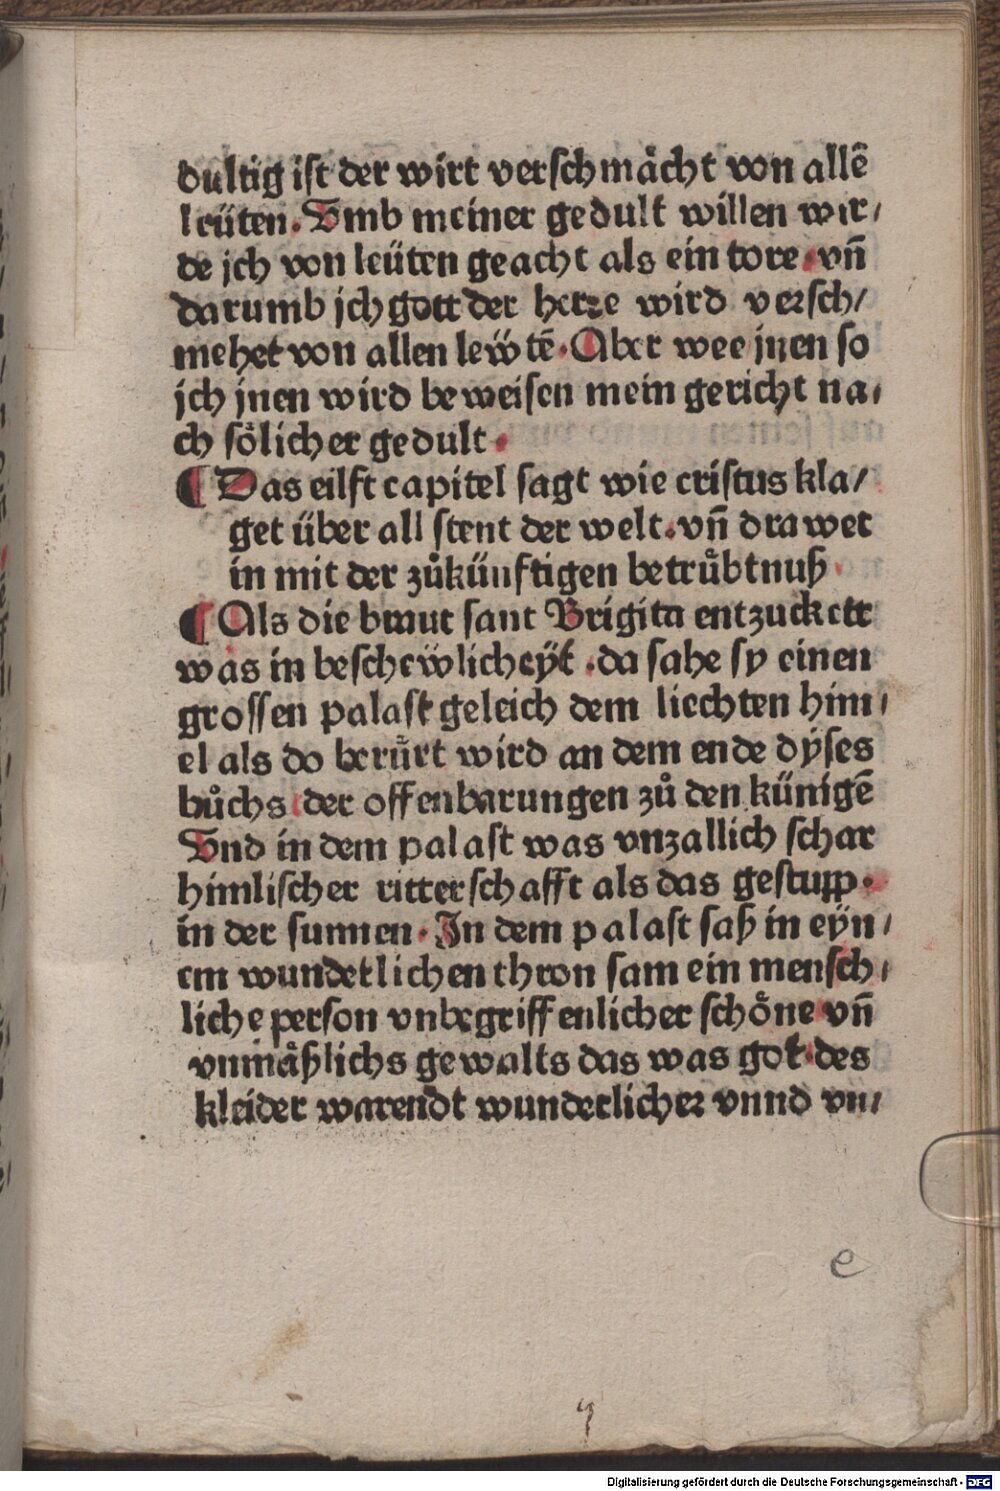 dultig ist der wirt verschmåcht von allẽ
leüten. Vmb meiner gedult willen wir/
de jch von leüten geacht als ein tore. vñ
darumb jch gott der herre wird versch/
mehet von allen lewtẽ. Aber wee jnen so
jch jnen wird beweisen mein gericht na/
ch sölicher gedult.
¶ Das eilft capitel sagt wie cristus kla/
get über all stent der welt. vñ drawet
in mit der zůkünftigen betrůbtnuß.
¶ Als die braut sant Brigita entzucket
was in beschewlicheyt. da sahe sy einen
grossen palast geleich dem liechten him/
el als do berůrt wird an dem ende dyses
bůchs der offenbarungen zů den künigẽ
Vnd in dem palast was vnzallich schar
himlischer ritterschafft als das gestupp.
in der sunnen. In dem palast saß in eyn/
em wunderlichen thron sam ein mensch/
liche person vnbegriffenlicher schöne vñ
vnmåßlichs gewalts das was got. des
kleider warendt wunderlicher vnnd vn/
e
Digitalisierung gefördert durch die Deutsche Forschungsgemeinschaft - DFG